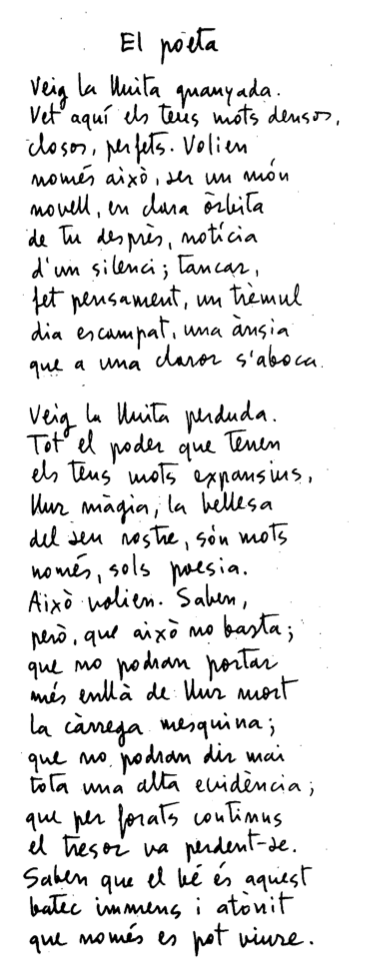 El poeta
Veig la lluita guanyada.
Vet aquí els teus mots densos,
closos, perfets. Volien
només això, ser un món
novell, en clara òrbita
de tu després, notícia
d'un silenci; tancar,
fet pensament, un trèmul
dia escampat, una ànsia
que a una claror s'aboca.
Veig la lluita perduda.
Tot el poder que tenen
els teus mots expansius,
llur màgia, la bellesa
del seu rostre, són mots
només, sols poesia.
Això volien. Saben,
però, que això no basta;
que no podran portar
més enllà de llur mort
la càrrega mesquina;
que no podran dir mai
tota una alta evidència;
que per forats continus
el tresor va perdent-se.
Saben que el bé és aquest
batec immens i atònit
que només es pot viure.